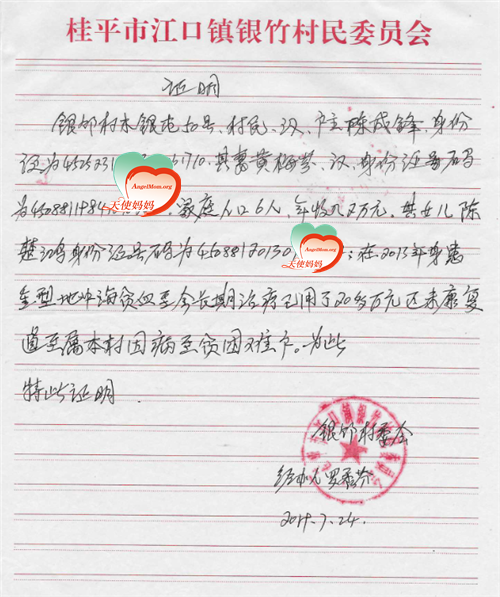 桂平市江口镇银竹村民委员会
证明
银竹村木银屯 号、村民、汉、户主陈成锋、身份
证为 1710.其妻黄梅芬、汉、身份证号码
为4508811984 家庭人口6人,年收入 万元,其女儿陈
楚 身份证号码为45088120130 :在2013年身患
重型地中海贫血至今长期治疗已用了20多万元还未康复
直至属本村因病至贫困难户。为此
特此证明.
银竹村委会
经办人罗 芬
7.24.
AngelMom.org
天使妈妈
AngelMom.org
天使妈妈